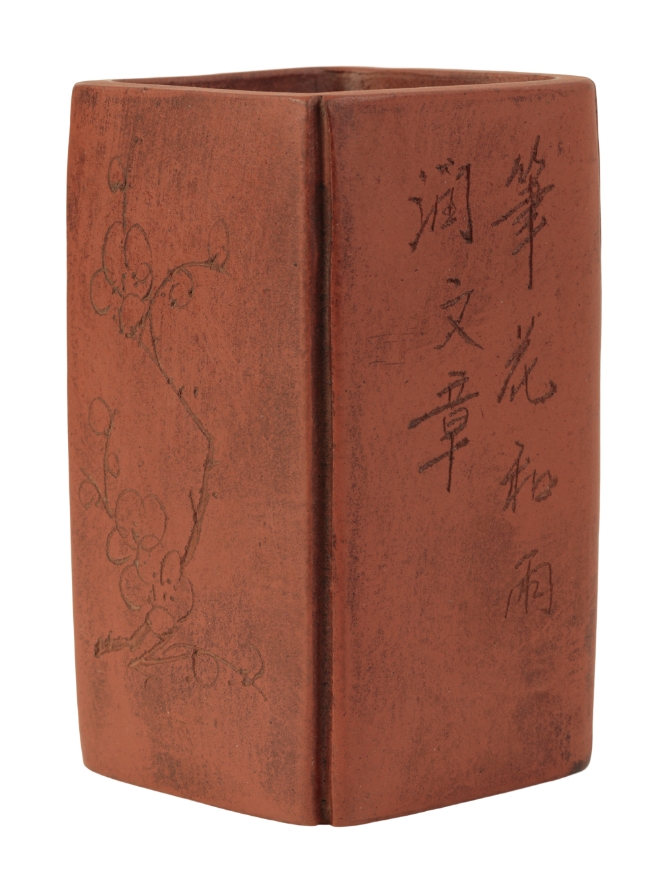 筆花和雨
潤文章